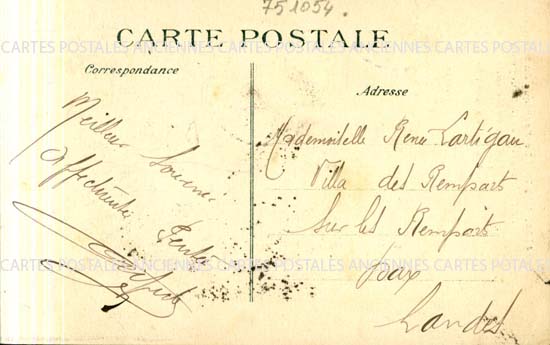 751054.
CARTE POSTALE
CARTES POSTALES ANCIENNES CARTES POSTALES ANCIENNES CARTES POTALES
Correspondance
Adresse
Meilleur Souvenir
Affectueuses
Mademoiselle Renée Lartigau
Villa des Rempart
Sur les Remparts
Dax
Landes
CARTES POSTALES ANCIENNES CARTES POSTALES ANCIENNES CARTES POTALES